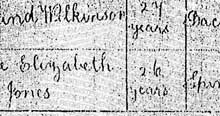 and Wilkinson 27 years Bac
Elizabeth Jones 26 years Spin